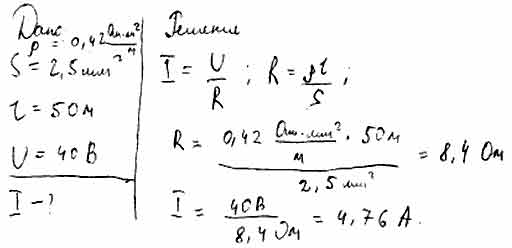 Дано
ρ = 0,42 Ом·мм²/м
S = 2,5 мм²
l = 50 м
U = 40 В
I - ?
Решение
I = U/R ; R = ρl/S ;
R = 0,42 Ом·мм²/м · 50 м / 2,5 мм² = 8,4 Ом
I = 40 В / 8,4 Ом = 4,76 А.